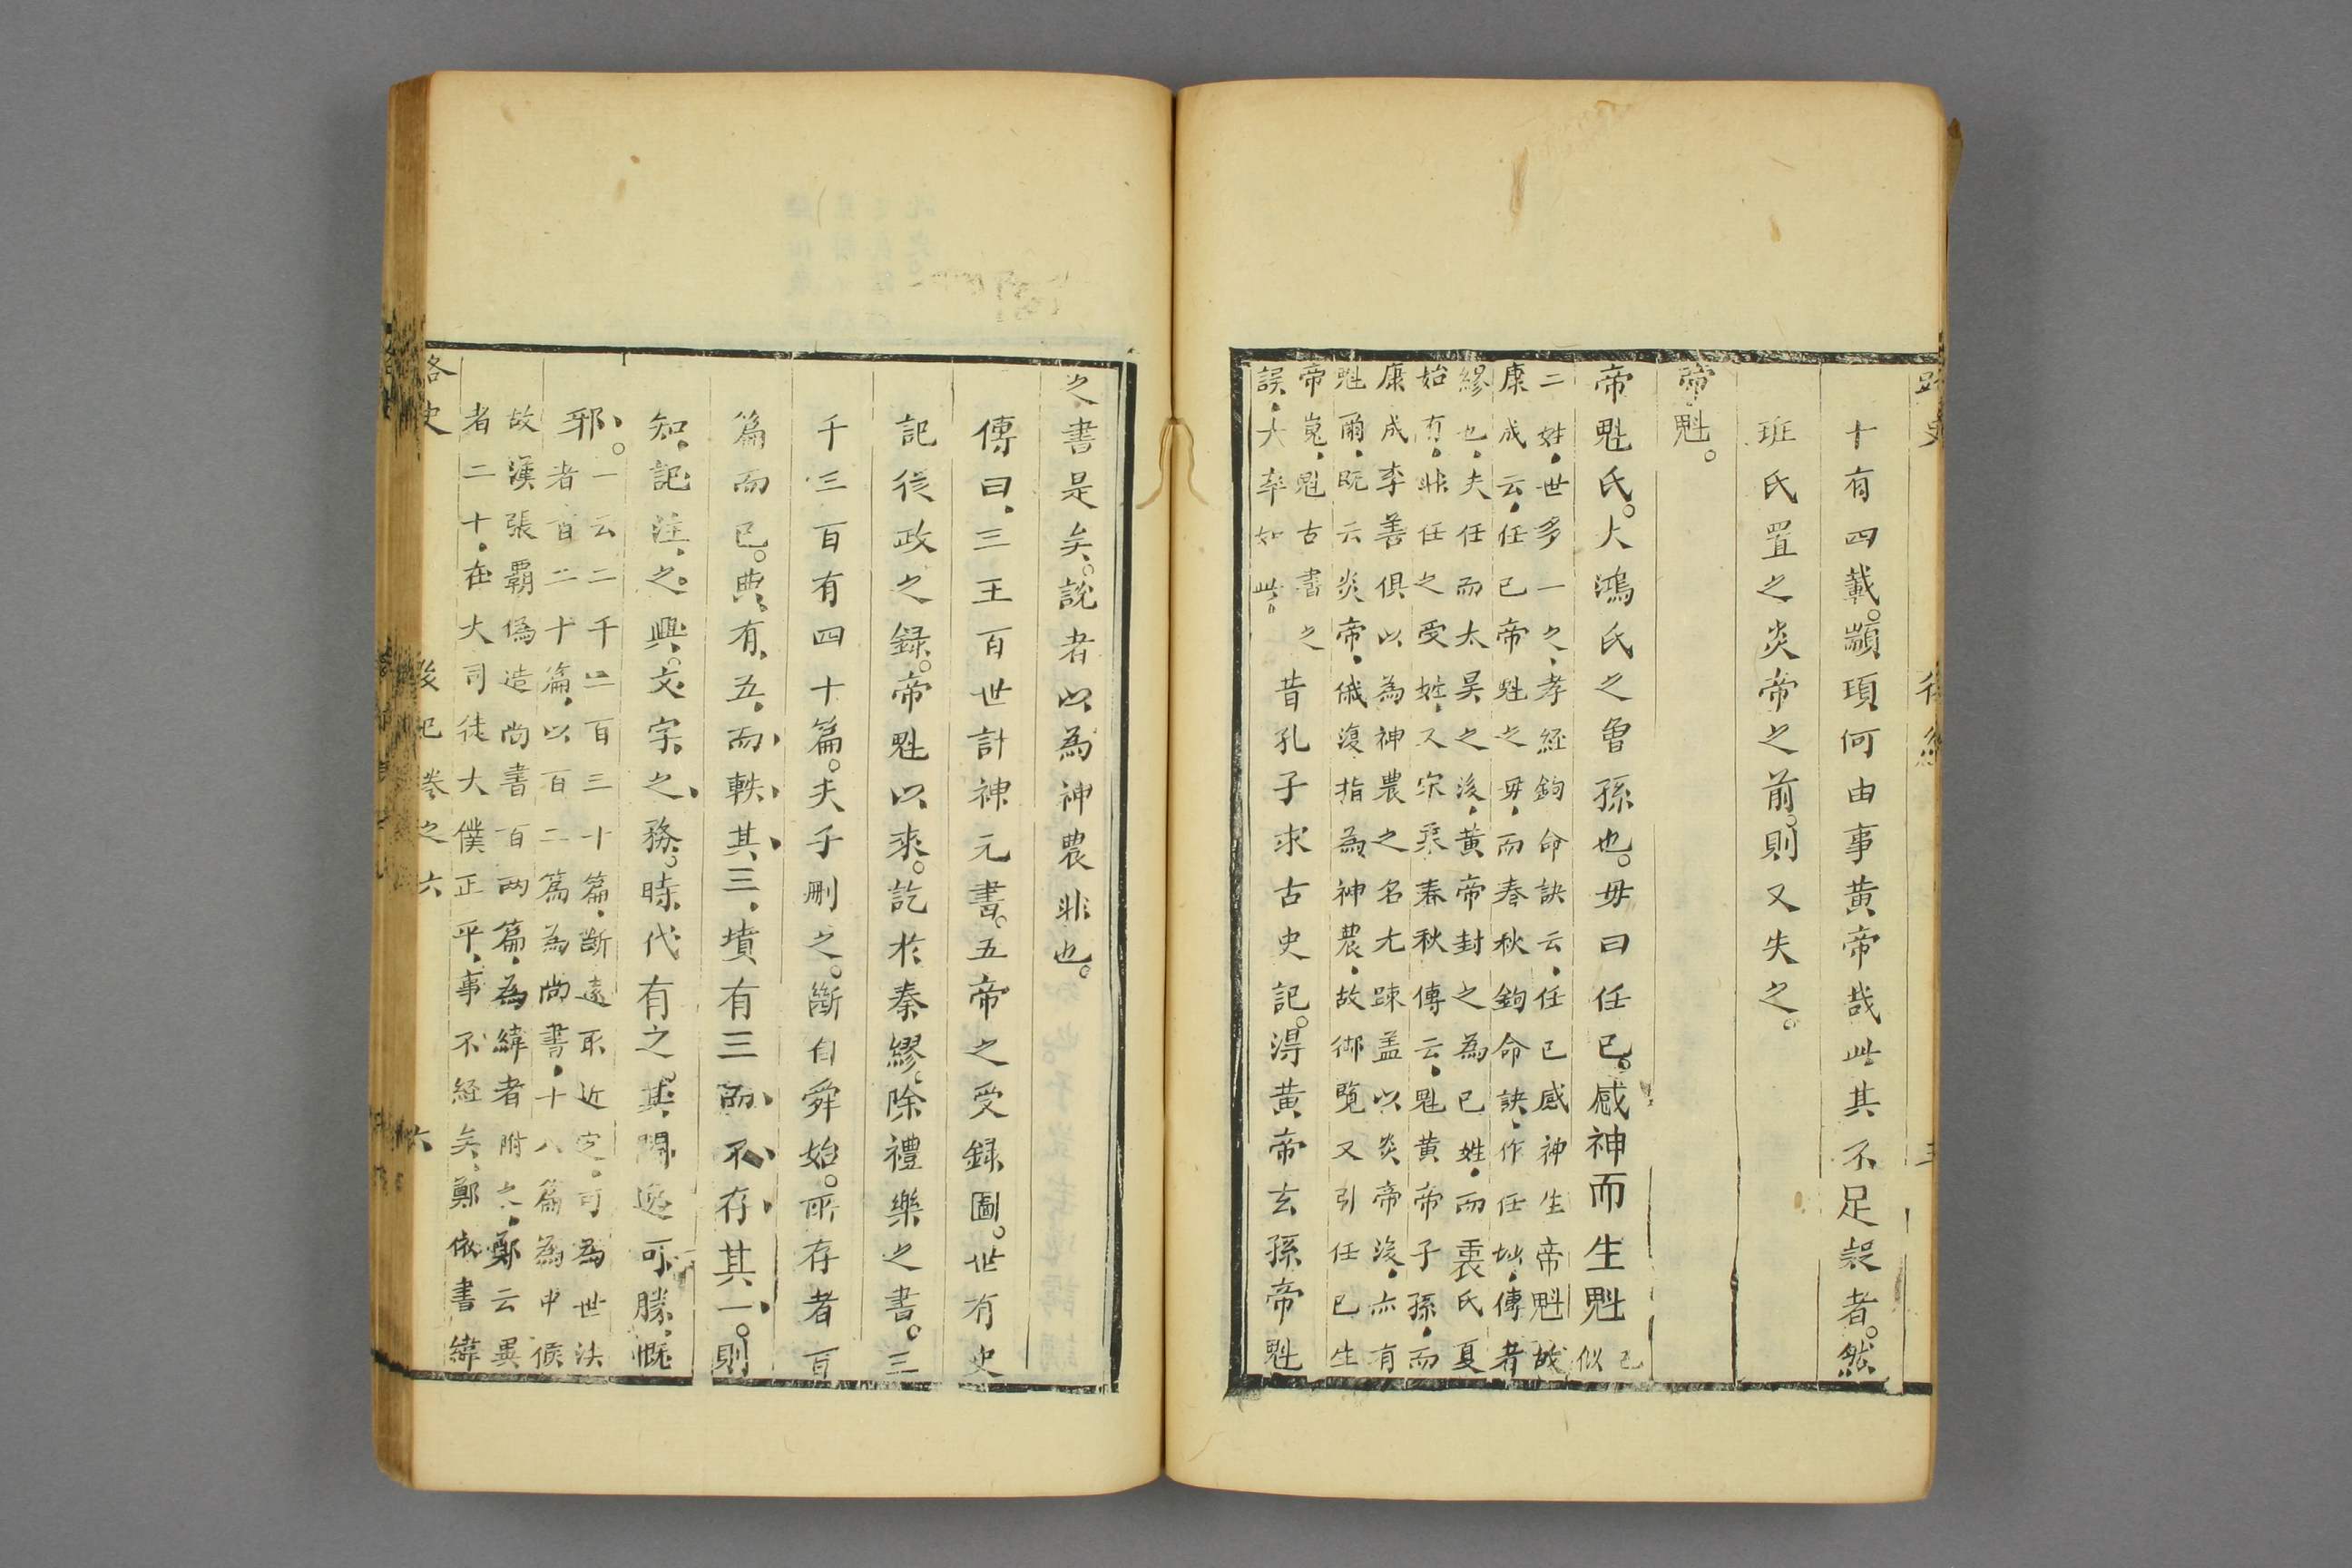 十有四載。顓頊何由事黄帝哉此其不足疑者。然
班氏置之炎帝之前。則又失之。
帝魁。
帝魁氏。大鴻氏之曽孫也。毋曰任已。感神而生魁已似
二姓。世多一之、孝経鉤命訣云、任已感神生帝魁。故
康成云、任已帝魁之毋、而春秋鉤命訣、作任姒、傳者
繆也。夫任而太昊之後、黄帝封之為已姓。而裏氏夏
始有。非任之受姓、又宋衷春秋傳云、魁黄帝子孫、而
康成李善俱以為神農之名尤踈盖以炎帝後、亦有
魁爾、既云炎帝、俄復指為神農、故御覧又引任已生
帝嵬、魁古書之
誤、大率如此。昔孔子求古史記。得黄帝玄孫帝魁
之書是矣。說者以為神農非也。
傳曰、三王百世計神元書。五帝之受録圖。世有史
記從政之録。帝魁以來。訖於秦繆。除禮樂之書。三
千三百有四十篇。夫子刪之。斷自舜始。所存者百
篇而已。典有五、而軼其三、墳有三而不存其一。則
知記注之興。文字之務。時代有之。其閒逸可勝慨
邪。一云二千三百三十篇、斷遠取近定、可為世法
者百二十篇、以百二篇為尚書、十八篇為中候
故漢張霸偽造尚書百两篇、為緯者附之、鄭云異
者二十、在大司徒大僕正乎、事不経矣、鄭依書緯
路史 後紀卷之六 六